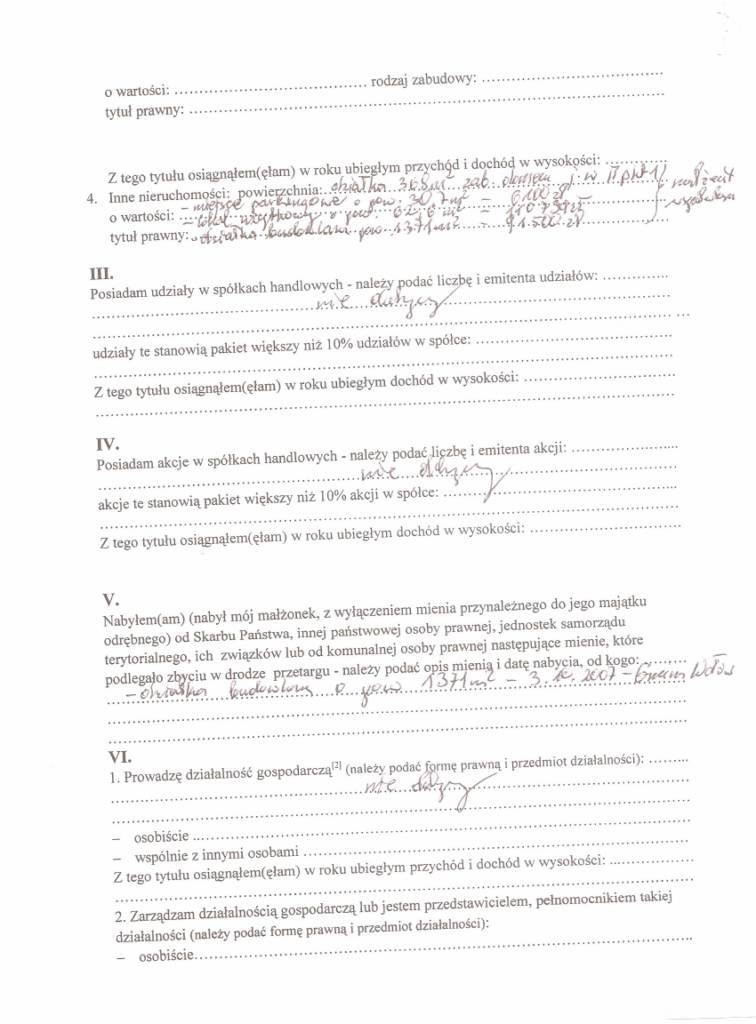 o wartości: ........................................ rodzaj zabudowy: ......................................
tytuł prawny: ....................................................................................................
Z tego tytułu osiągnąłem(ęłam) w roku ubiegłym przychód i dochód w wysokości: .............
4. Inne nieruchomości: powierzchnia: działka 368 m² zab. domem j. w II pkt 1/
o wartości: – miejsce parkingowe o pow. 30,7 m² = 6100 zł małżeńska
– lokal użytkowy o pow. 62,6 m² =
tytuł prawny: – działka budowlana pow. 1371 m² – 91.500 zł
III.
Posiadam udziały w spółkach handlowych - należy podać liczbę i emitenta udziałów: ..............
nie dotyczy
udziały te stanowią pakiet większy niż 10% udziałów w spółce: ........................................
Z tego tytułu osiągnąłem(ęłam) w roku ubiegłym dochód w wysokości: ................................
IV.
Posiadam akcje w spółkach handlowych - należy podać liczbę i emitenta akcji: ......................
nie dotyczy
akcje te stanowią pakiet większy niż 10% akcji w spółce: ................................................
Z tego tytułu osiągnąłem(ęłam) w roku ubiegłym dochód w wysokości: ................................
V.
Nabyłem(am) (nabył mój małżonek, z wyłączeniem mienia przynależnego do jego majątku
odrębnego) od Skarbu Państwa, innej państwowej osoby prawnej, jednostek samorządu
terytorialnego, ich związków lub od komunalnej osoby prawnej następujące mienie, które
podlegało zbyciu w drodze przetargu - należy podać opis mienia i datę nabycia, od kogo: .........
– działka budowlana o pow 1371 m² – 2007 – Gmina Wołów
VI.
1. Prowadzę działalność gospodarczą[2] (należy podać formę prawną i przedmiot działalności): .........
nie dotyczy
– osobiście ....................................................................................................
– wspólnie z innymi osobami ................................................................................
Z tego tytułu osiągnąłem(ęłam) w roku ubiegłym przychód i dochód w wysokości: ..................
2. Zarządzam działalnością gospodarczą lub jestem przedstawicielem, pełnomocnikiem takiej
działalności (należy podać formę prawną i przedmiot działalności):
– osobiście....................................................................................................